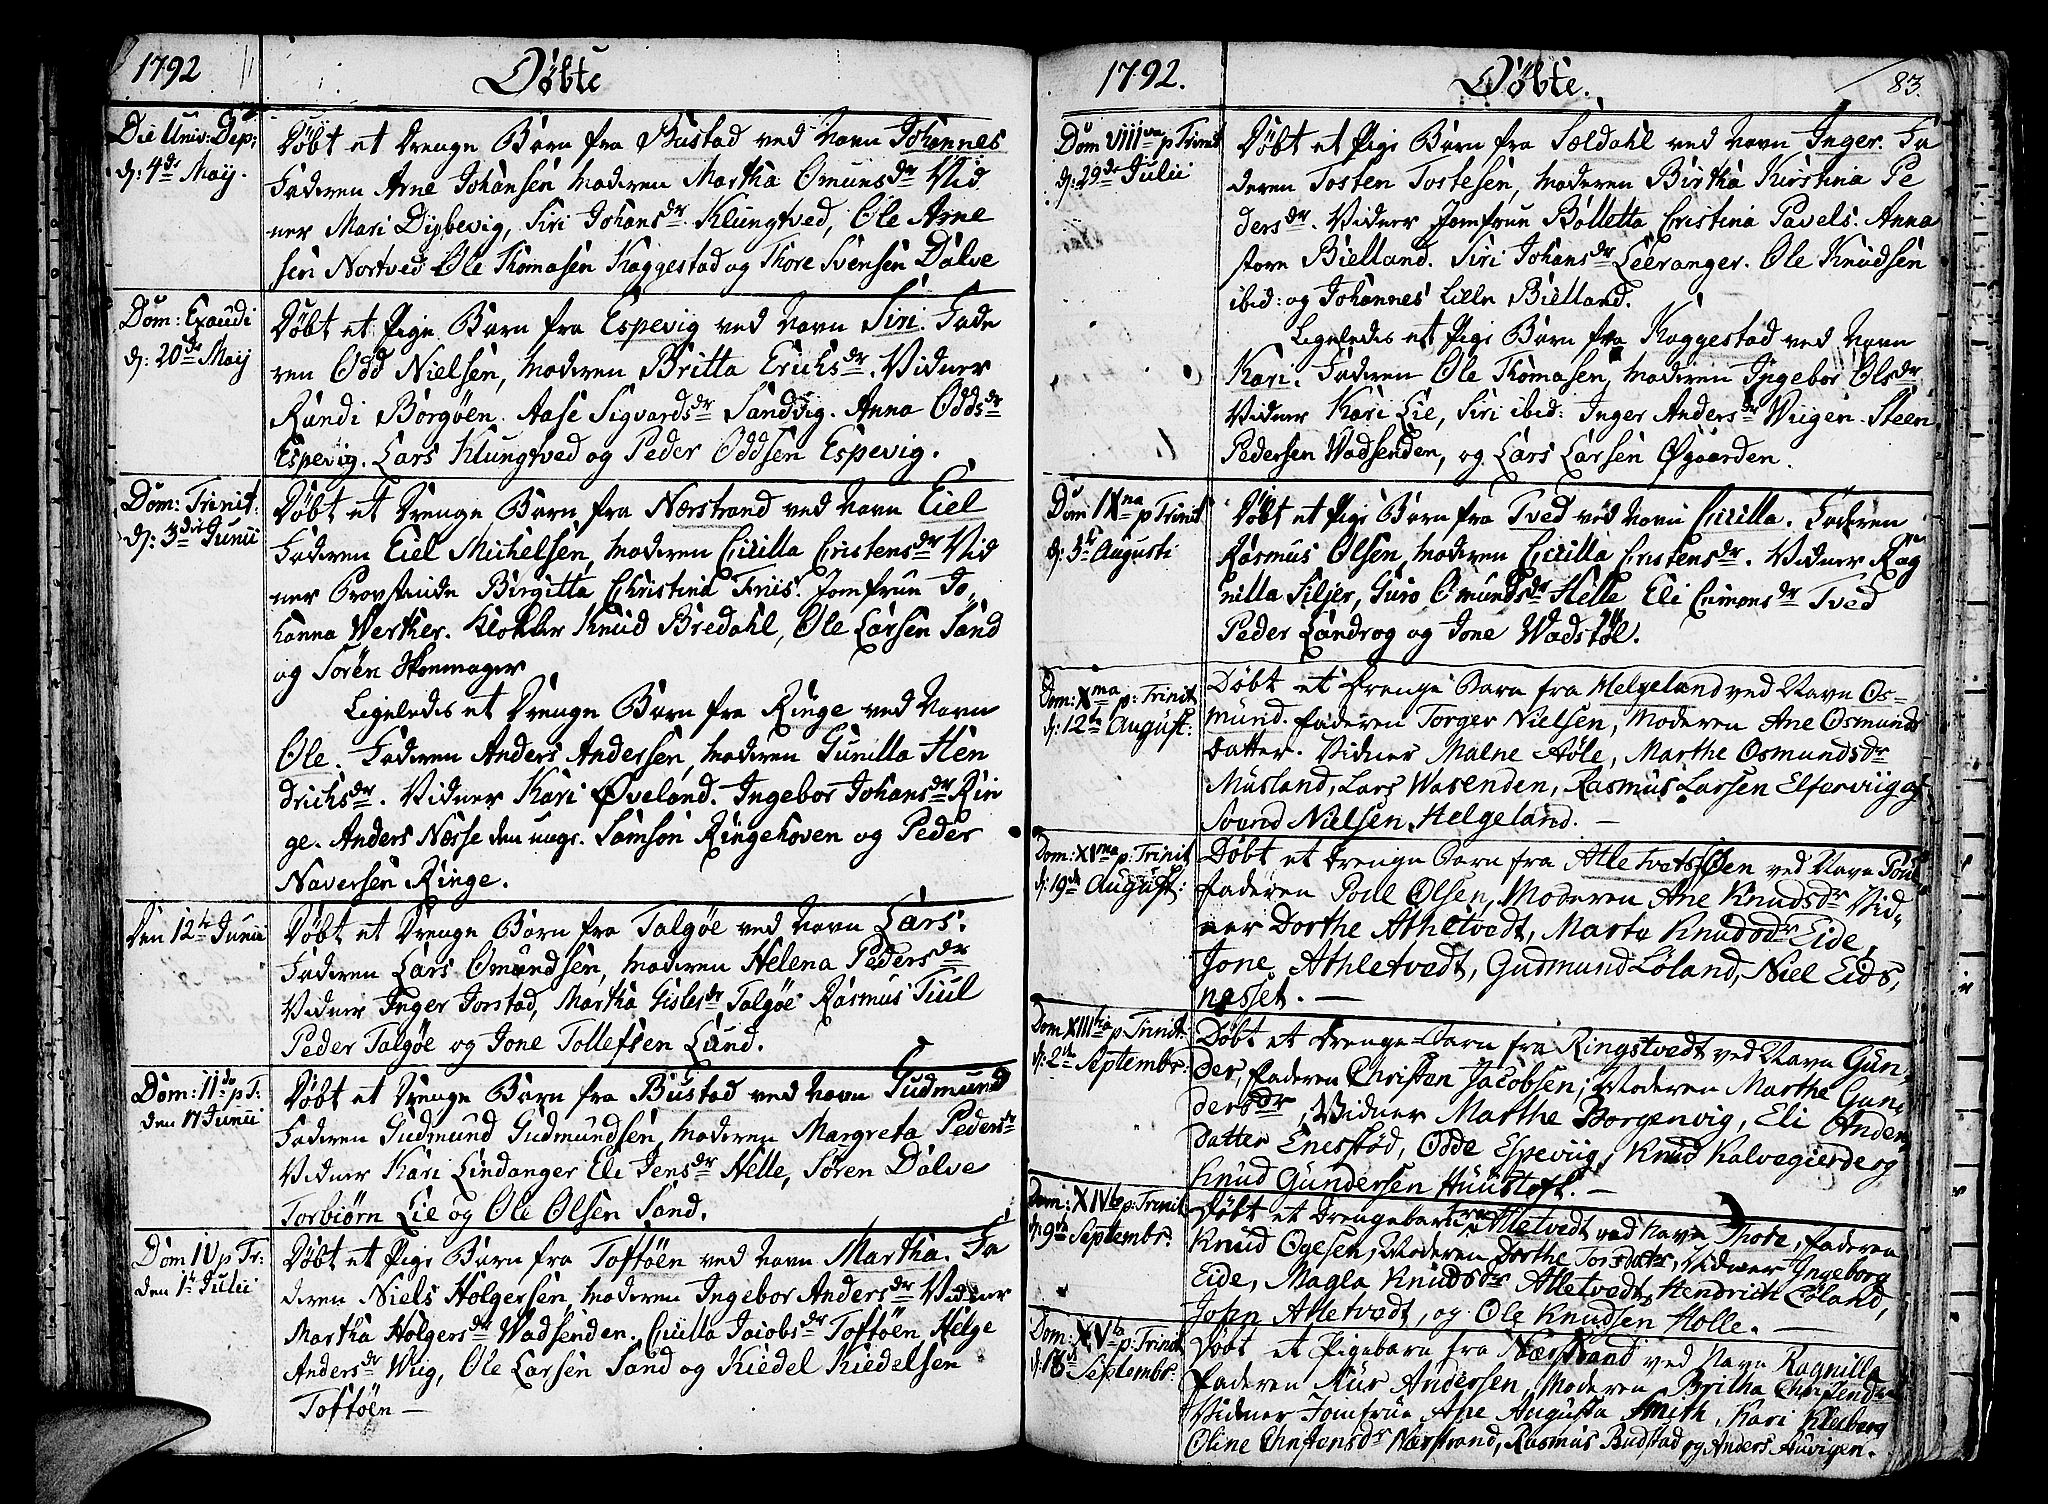 1792
Döbte
Die Univ: Dep:
d: 4de Maij.
Döbt et Drenge Barn fra Bustad ved Navn Johannes
Faderen Arne Johansen Moderen Martha Omunsdr Vid
ner Mari Dijbevig, Siri Johansdr Klungtved, Ole Arne
sen Nortved Ole Thomasen Kaggestad og Thore Svensen Dalve
Dom: Exaudi
d: 20de Maij
Döbt et Pige Barn fra Espevig ved Navn Siri. Fade
ren Odd Nielsen, Moderen Britta Erichsdr. Vidner
Randi Borgöen. Aase Sigvardsdr Sandvig. Anna Oddsdr
Espevig. Lars Klungtved og Peder Oddsen Espevig.
Dom: Trinit:
d: 3die Junii
Döbt et Drenge Barn fra Nærstrand ved Navn Eiel
Faderen Eiel Michelsen, Moderen Cicilla Cristensdr Vid
ner Provstinde Birgitta Christina Friis. Jomfrue Jo
hanna Werker. Klokker Knud Bredahl, Ole Larsen Sand
og Sören Skomager
Ligeledes et Drenge Barn fra Ringe ved Navn
Ole. Faderen Anders Andersen, Moderen Gunilla Hen
drichsdr. Vidner Kari Øveland. Ingebor Johansdr Rin
ge. Anders Næsse den unge. Samson Ringehoven og Peder
Naversen Ringe.
Den 12te Junii
Döbt et Drenge Barn fra Talgöe ved Navn Lars.
Faderen Lars Omundsen, Moderen Helena Pedersdr
Vidner Inger Jorstad, Martha Gislesdr Talgöe Rasmus Tuul
Peder Talgöe og Jone Tollefsen Lund.
Dom: IIda p T.
den 17 Junii
Döbt et Drenge Barn fra Bustad ved Navn Gudmund
Faderen Gudmund Gudmundsen, Moderen Margreta Pedersdr
Vidner Kari Lindanger Eli Jensdr Helle, Sören Dalve
Torbiörn Lie og Ole Olsen Sand.
Dom: IV p Tr:
den 1te Julii
Döbt et Pige Barn fra Toftöen ved Navn Martha. Fa
deren Niels Holgersen, Moderen Ingebor Andersdr Vidner
Martha Holgersdr Wadsenden. Cicilla Jacobsdr Toftöen Helge
Andersdr Wiig, Ole Larsen Sand og Kiedel Kiedelsen
Toftöen
1792.
Döbte.
83.
Dom VIIIva p Trinit
d: 29de Julii
Döbt et Pige Barn fra Sældahl ved Navn Inger. Fa
deren Tosten Tostesen, Moderen Birtha Kirstina Pe
dersdr. Vidner Jomfrue Bolletta Cristina Pavels. Anna
store Bielland. Siri Johansdr Leeranger. Ole Knudsen
ibid: og Johannes Lille Bielland.
Ligeledes et Pige Barn fra Kaggestad ved Navn
Kari. Faderen Ole Thomasen, Moderen Ingebor Olsdr
Vidner Kari Lie, Siri ibid: Inger Andersdr Wiigen. Steen
Pedersen Wadsenden, og Lars Larsen Øgaarden.
Dom IXna p Trinit
d: 5te Augusti
Döbt et Pige Barn fra Tved ved Navn Cicilla. Faderen
Rasmus Olsen, Moderen Cicilla Cristensdr. Vidner Rag
nilla Siljer, Guro Omundsdr Helle Eli Simonsdr Tved
Peder Landrog og Jone Wadstöl.
Dom: Xma p: Trinit
d: 12te August:
Döbt et Drenge Barn fra Helgeland ved Navn Os-
mund. Faderen Torger Nielsen, Moderen Ane Osmunds
Datter. Vidner Malne Höle, Marthe Osmundsdr
Musland, Lars Wasenden, Rasmus Larsen Elferviig og
Svend Nielsen Helgeland. —
Dom: XIma p: Trinit
d: 19de August:
Döbt et Drenge Barn fra Atletvet ved Navn Poul
Faderen Poul Olsen, Moderen Ane Knudsdr Vid-
ner Dorthe Athletvedt, Marte Knudsdr Eide,
Jone Athletvedt, Gudmund Löland, Niel Eids,
nesset. —
Dom XIIItia p: Trinit:
d: 2de Septembr:
Döbt et Drenge-Barn fra Ringstvedt ved Navn Gun,
der, Faderen Christen Jacobsen, Moderen Marthe Gun,
dersdr, Vidner Marthe Borgenvig, Eli Anden
datter Enesstød, Odde Espeviig, Knud Kalvegierde og
Knud Gundersen Huustoft. —
Dom: XIVta p: Trinit:
d: 9de Septembr:
Döbt et Drengebarn fra Atletvedt ved Navn Thore, Faderen
Knud Ogesen, Moderen Dorthe Torsdatr, Vidner Ingeborg
Eide, Magla Knudsdr Atletvedt, Hendrich Löland,
John Atletvedt, og Ole Knudsen Holle. —
Dom: XVta p: Trinit
d: 16de Septembr:
Döbt et Pigebarn fra Nærstrand ved Navn Ragnilla
Faderen Andersen, Moderen Britha Christensdr
Vidner Jomfrue Ane Augusta Smith, Kari Kleiberg
Oline Christensdr Nærstrand, Rasmus Budstad og Anders Auvigen.